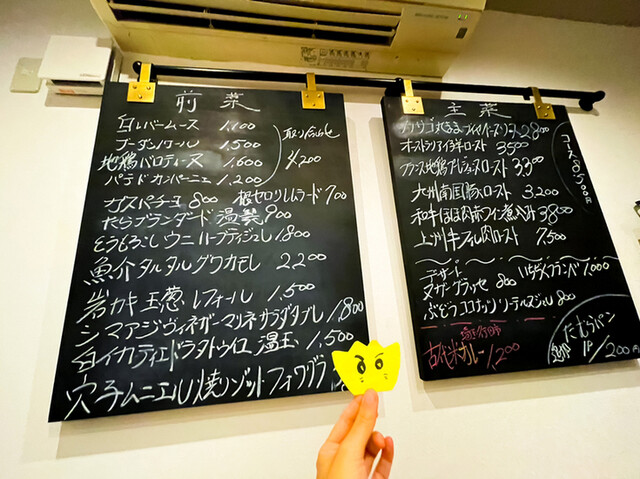 前菜
白レバームース 1,100
ブーダンノワール 1,500
地鶏バロティーヌ 1,600
パテドカンパーニュ 1,200
取り合わせ
4,200
ガスパチョ 800
根セロリレムラード 700
たらブランダード 温製 900
とうもろこし ウニ ハーブティジュレ 1,800
魚介タルタルグワカモレ 2,200
岩カキ 玉葱 レフォール 1,500
シマアジヴィネガーマリネサラダタブレ 1,800
白イカティエドラタトゥイユ 温玉 1,500
穴子ムニエル焼リゾットフォワグラ
主菜
2,800
オーストラリア仔羊ロースト 3,500
フランス地鶏 ロースト 3,300
大州南国豚ロースト 3,200
和牛ほほ肉赤ワイン煮込み 3,800
上州牛フィレ肉ロースト 7,500
コース 8,500円
デザート
ヌガーグラッセ 800
いちぢくフラン 1,000
ぶどうココナッツ ソーテルヌジュレ 800
古代米カレー 1,200
たむらパン
1P/200円